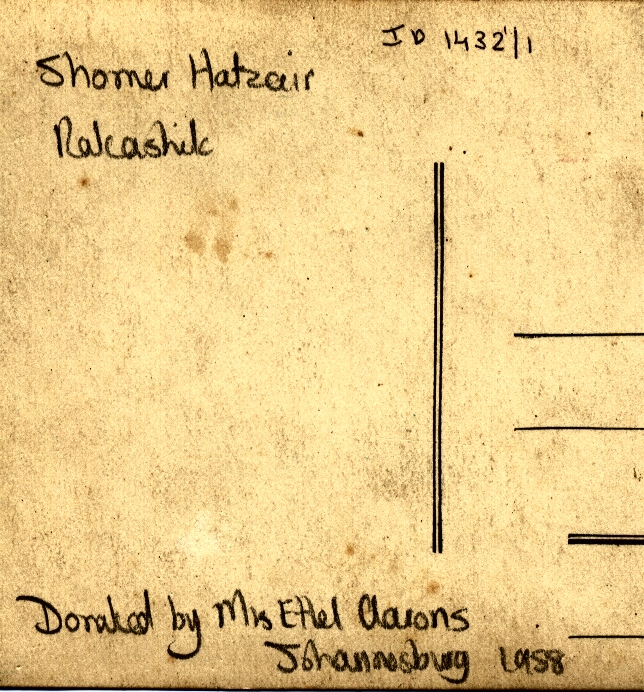 ID 1432'/1
Shomer Hatzair
Rakashik
Donated by Mrs Ethel Aarons
Johannesburg 1988